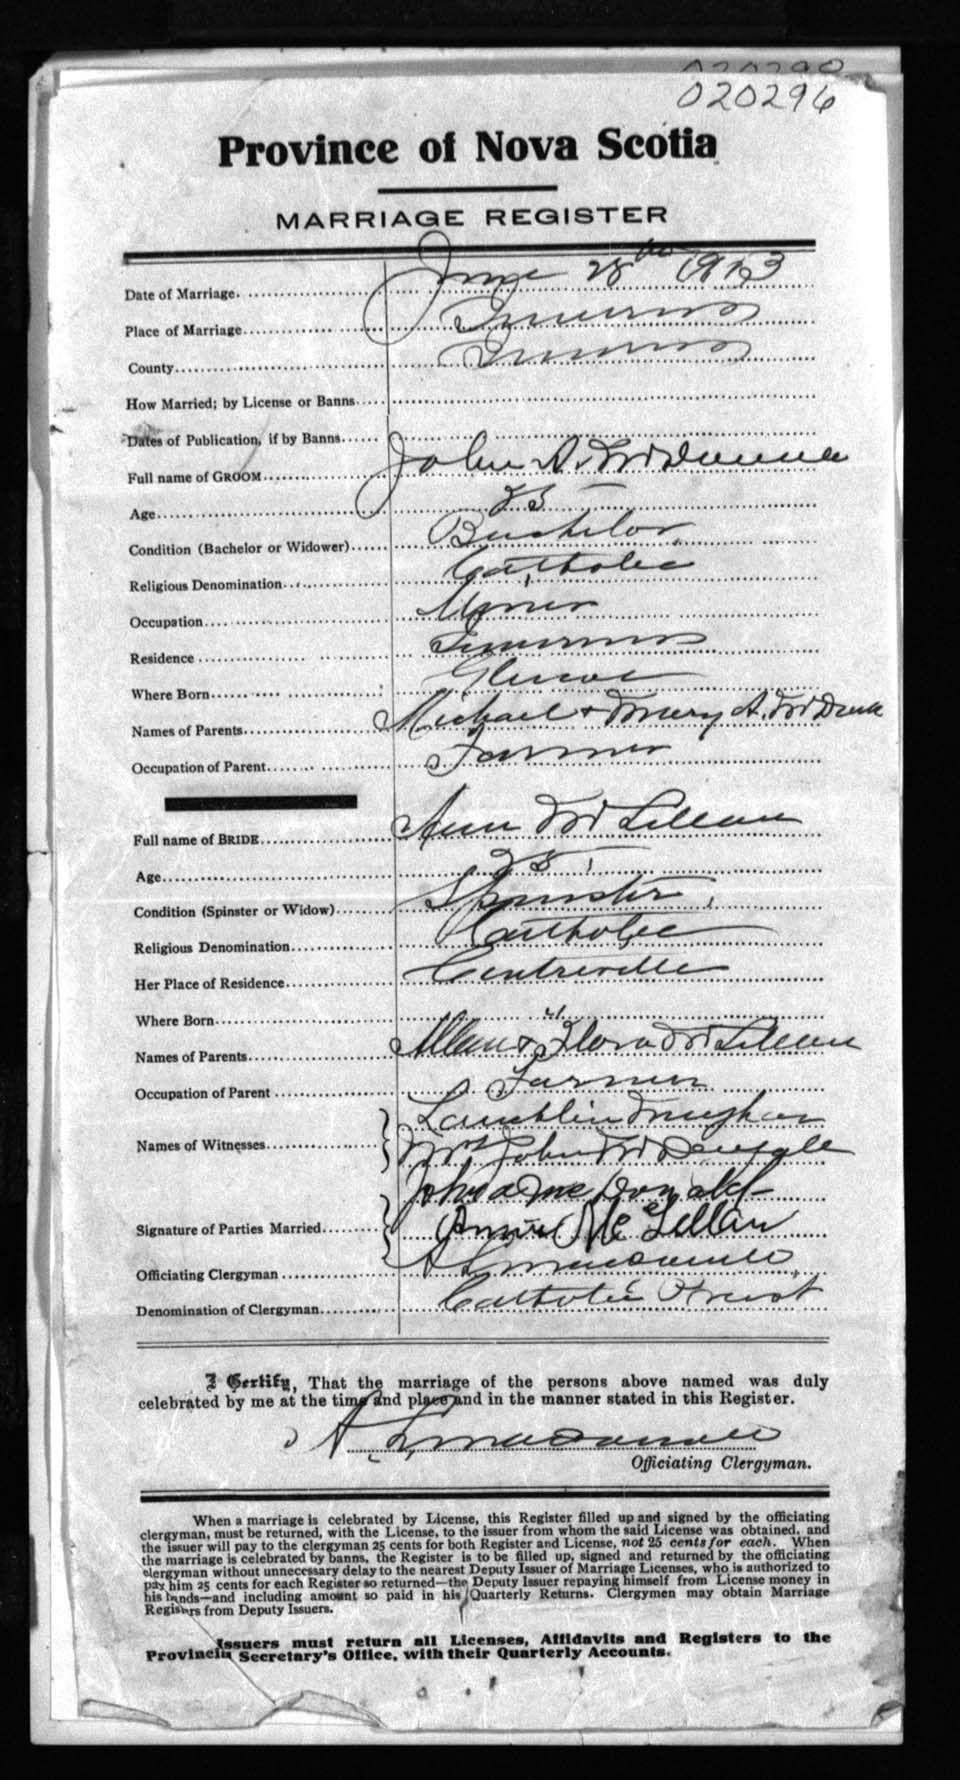 020290
020296
Province of Nova Scotia
MARRIAGE REGISTER
Date of Marriage. June 28th 1913
Place of Marriage Inverness
County Inverness
How Married; by License or Banns
Dates of Publication, if by Banns
Full name of GROOM John A.
Age
Condition (Bachelor or Widower) Bachelor
Religious Denomination Catholic
Occupation Miner
Residence Inverness
Where Born Glencoe
Names of Parents Michael & Mary A.
Occupation of Parent Farmer
Full name of BRIDE Ann McLellan
Age
Condition (Spinster or Widow) Spinster
Religious Denomination Catholic
Her Place of Residence Centreville
Where Born "
Names of Parents Allan & Flora McLellan
Occupation of Parent Farmer
Names of Witnesses Lauchlin
Mrs John
Signature of Parties Married John a Mc Donald
Annie Mc Lellan
Officiating Clergyman A
Denomination of Clergyman Catholic Priest
I Certify, That the marriage of the persons above named was duly
celebrated by me at the time and place and in the manner stated in this Register.
A
Officiating Clergyman.
When a marriage is celebrated by License, this Register filled up and signed by the officiating
clergyman, must be returned, with the License, to the issuer from whom the said License was obtained, and
the issuer will pay to the clergyman 25 cents for both Register and License, not 25 cents for each. When
the marriage is celebrated by banns, the Register is to be filled up, signed and returned by the officiating
clergyman without unnecessary delay to the nearest Deputy Issuer of Marriage Licenses, who is authorized to
pay him 25 cents for each Register so returned—the Deputy Issuer repaying himself from License money in
his hands—and including amount so paid in his Quarterly Returns. Clergymen may obtain Marriage
Registers from Deputy Issuers.
Issuers must return all Licenses, Affidavits and Registers to the
Provincial Secretary's Office, with their Quarterly Accounts.